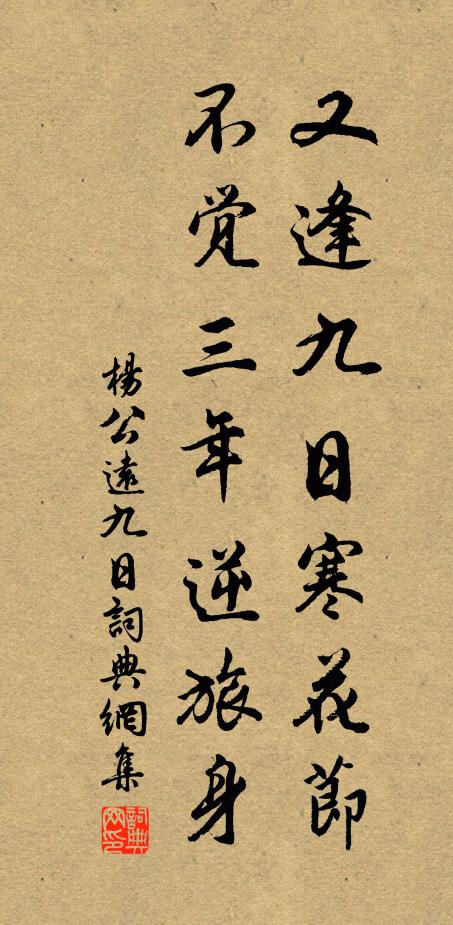 又逢九日寒花節
不覚三年逆旅身
楊公遠九日詞典網集
詞典网印